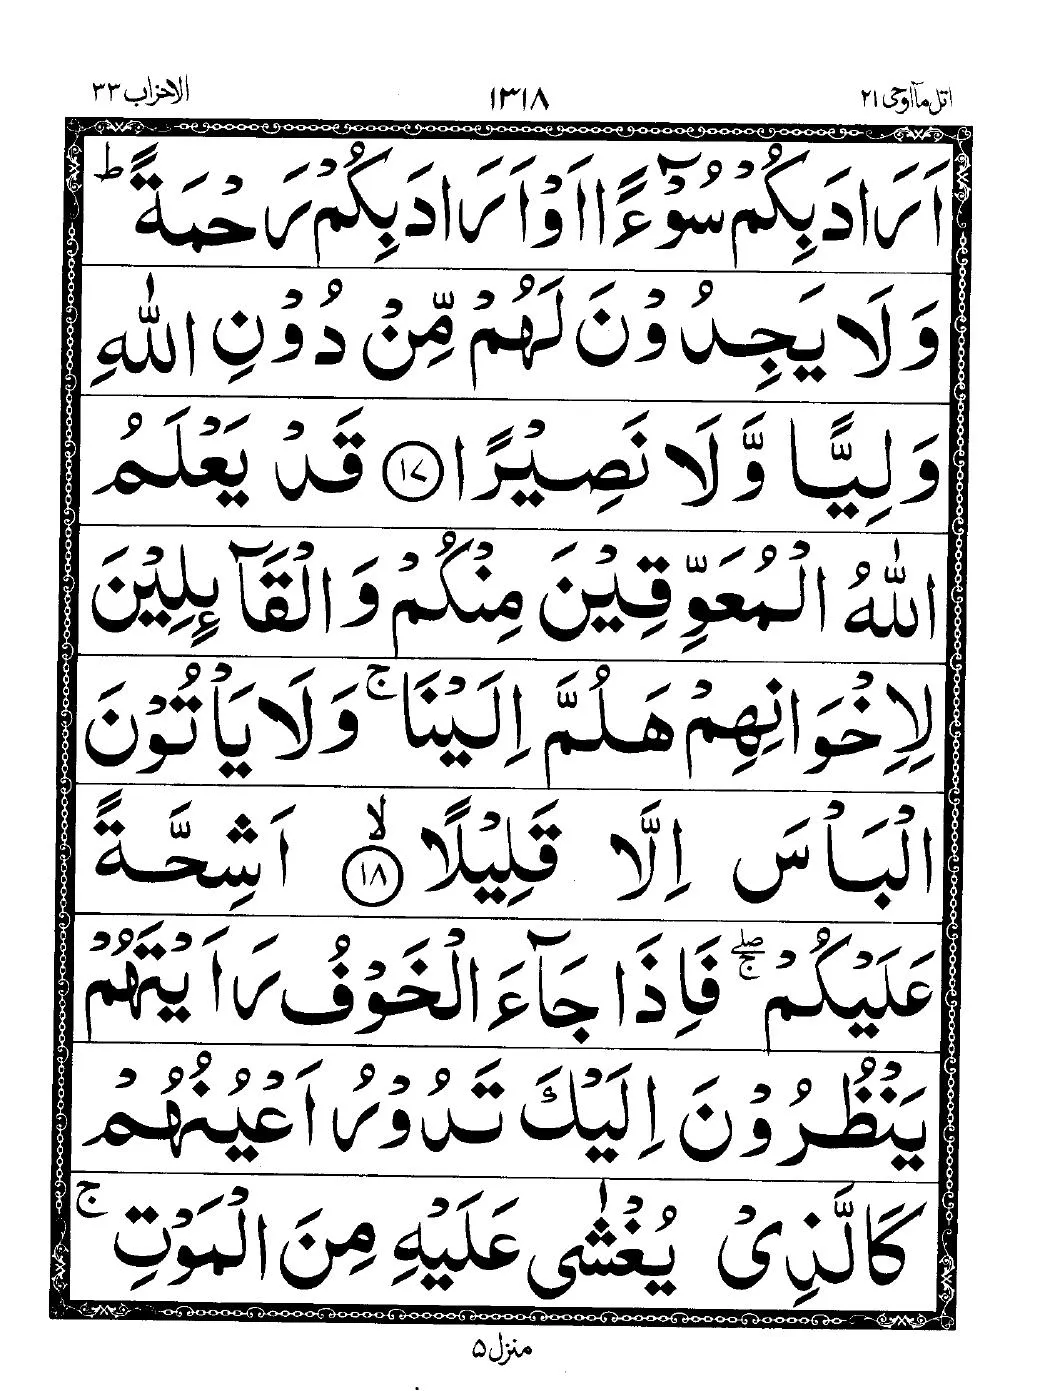 اتل مآ اوحی ۲۱ ۱۳۱۸ الاحزاب ۳۳
اَرَادَ بِكُمْ سُوْٓءًا اَوْ اَرَادَ بِكُمْ رَحْمَةً ؕ
وَلَا يَجِدُوْنَ لَهُمْ مِّنْ دُوْنِ اللّٰهِ
وَلِيًّا وَّلَا نَصِيْرًا ۱۷ قَدْ يَعْلَمُ
اللّٰهُ الْمُعَوِّقِيْنَ مِنْكُمْ وَالْقَآىِٕلِيْنَ
لِاِخْوَانِهِمْ هَلُمَّ اِلَيْنَا ۚ وَلَا يَاْتُوْنَ
الْبَاْسَ اِلَّا قَلِيْلًا ۙ ۱۸ اَشِحَّةً
عَلَيْكُمْ ۖۚ فَاِذَا جَآءَ الْخَوْفُ رَاَيْتَهُمْ
يَنْظُرُوْنَ اِلَيْكَ تَدُوْرُ اَعْيُنُهُمْ
كَالَّذِيْ يُغْشٰى عَلَيْهِ مِنَ الْمَوْتِ ۚ
منزل ۵